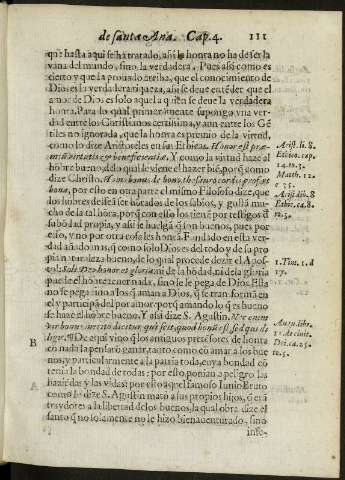 de santa Ana. Cap. 4. 111
que hasta aqui se ha tratado, assi la honra no ha de ser la
vana del mundo, sino la verdadera. Pues assi como es
cierto y que la prouado arriba, que el conocimiento de
Dios es la verdadera riqueza, assi se deue entẽder que el
amor de Dios es solo aquel a quien se deue la verdadera
honra. Para lo qual primeramente supongo vna ver-
dad entre los Christianos certissima, y aun entre los Gẽ-
tiles no ignorada, que la honra es premio de la virtud,
como lo dize Aristoteles en sus Ethicas. Honor est præ-
mium virtutis & beneficentiæ. Y como la virtud haze al
hombre bueno, del qual le viene el hazer biẽ, por q̃ como
dize Christo, Homo bonus de bono thesauro cordis profert
bona, por esso en otra parte el mismo Filosofo dize, que
los hombres dessean ser honrados de los sabios, y gustã mu
cho de la tal hõra, porq̃ con esso los tiene por testigos d̃
su bõdad propia, y assi se huelgã q̃ son buenos, pues por
esso, y no por otra cosa les honrã. Fundado en esta ver-
dad añado mas, q̃ como solo Dios es del todo y de su pro
pia naturaleza bueno, de lo qual procede dezir el Apos-
tol: Soli Deo honor & gloria: ni de la bõdad, ni de la gloria
puede el hõbre tener nada, sino se le pega de Dios. Esta
no se pega sino a los q̃ aman a Dios, q̃ se transformã en
el y participã del por amor: porq̃ amando lo q̃ es bueno
se haze el hõbre bueno. Y assi dize S. Agustin. Neque enim
vir bonus merito dicitur qui scit, quod bonũ est, sed qui di-
ligit. De aqui vino q̃ los antiguos pretẽsores de honra
cõ nada la pensarõ ganar, tanto como cõ amar a los bue
nos, y particularmente a la patria toda, en ya bondad cõ
tenia la bondad de todas: por esto, ponian a peligro las
haziẽdas y las vidas: por esto aquel famoso Iunio Bruto
como dize S. Agustin mato a sus propios hijos, q̃ erã
traydores a la libertad de los buenos, la qual obra dize el
santo q̃ no solamente no le hizo bienauenturado, sino
infe-
Arist. li. 8
Ethic. cap.
14. to. 5.
Matth. 12
e 35.
Arist. lib. 8
Ethic. ca. 8.
to. 5.
1. Tim. 1. d
17.
Aug. libr.
11. de ciuit.
Dei. ca. 25.
to. 5.
B